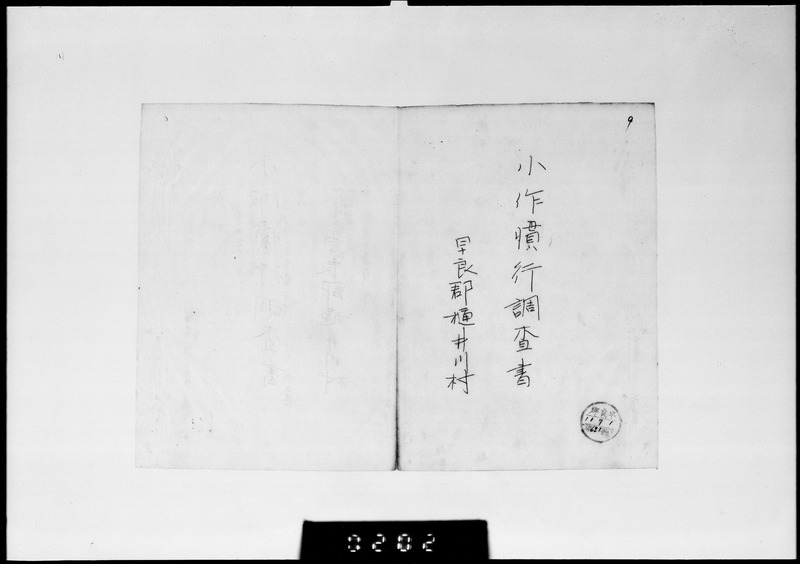 9
小作慣行調査書
早良郡樋井川村
11 9 1
0202